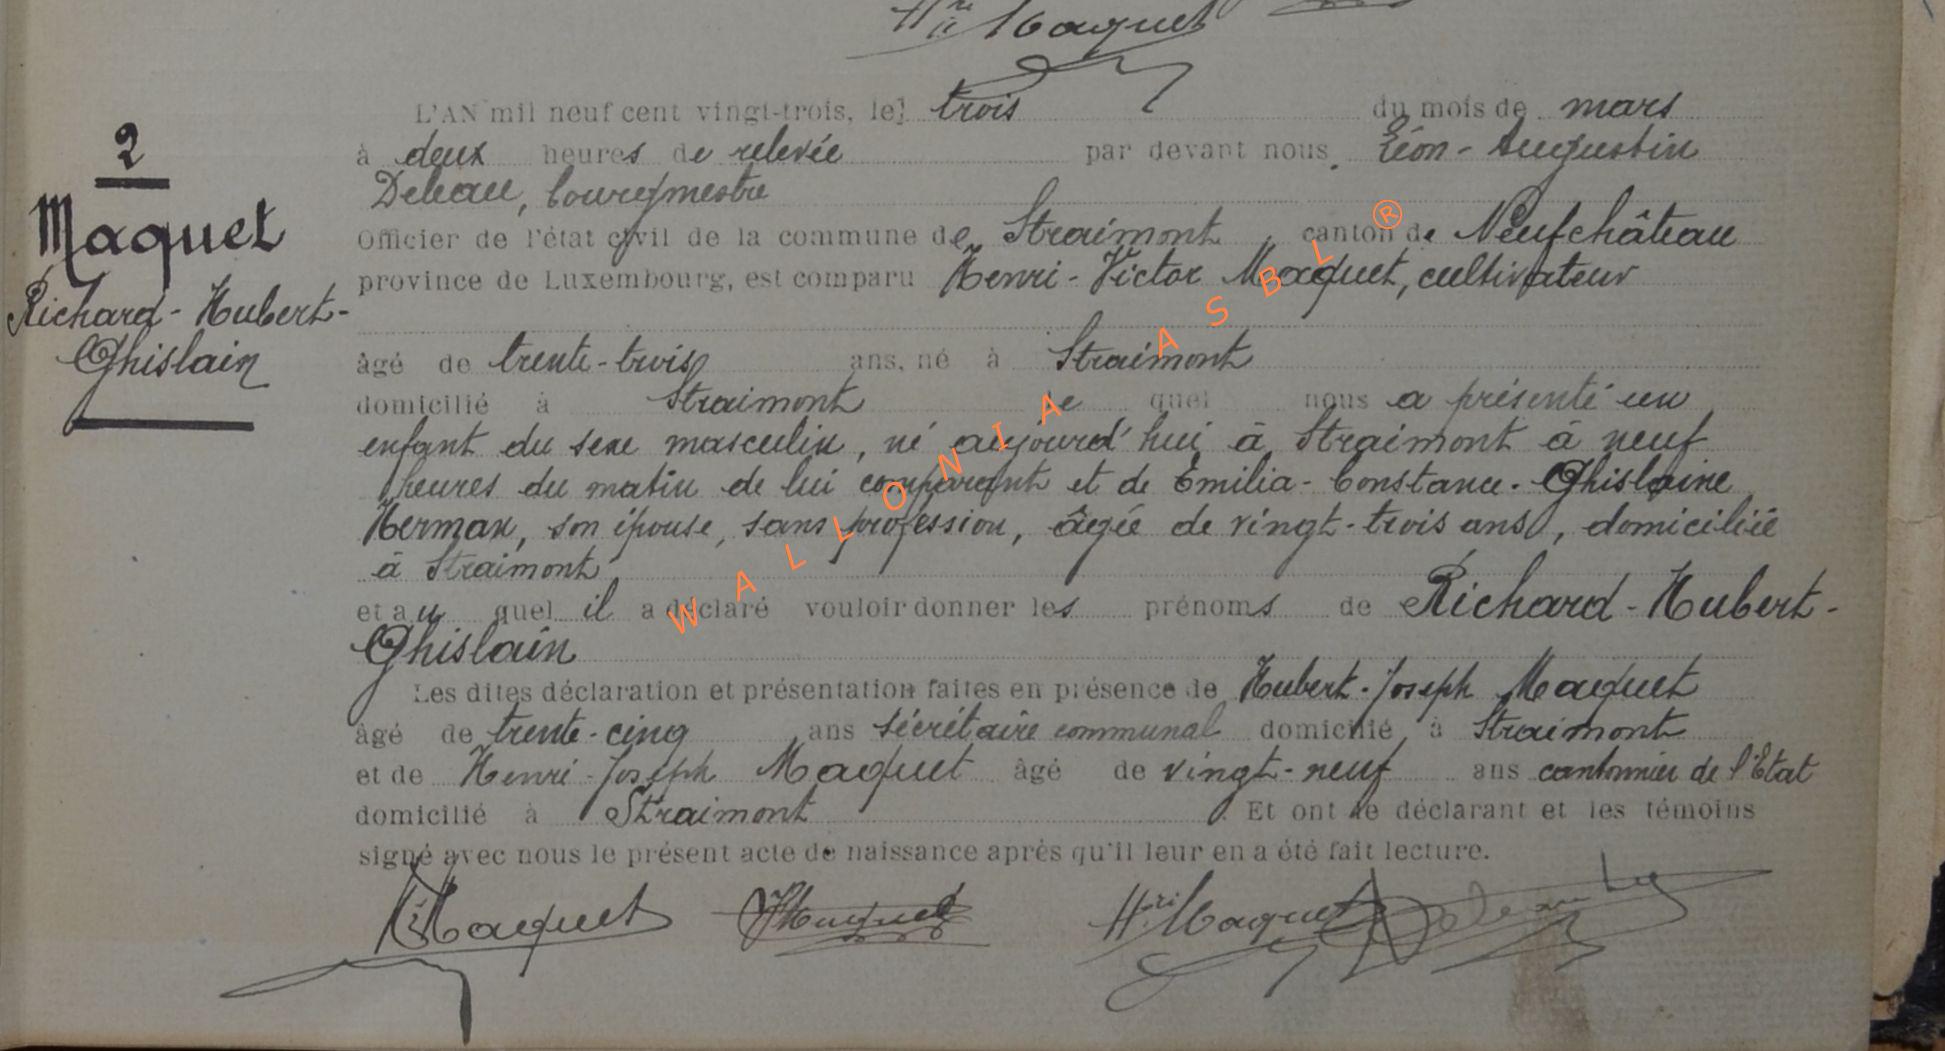 Hri Maquet
2
Maquet
Richard-Hubert-
Ghislain
L'AN mil neuf cent vingt-trois, le trois du mois de mars
à deux heures de relevée par devant nous, Léon-Augustin
Deleau, bourgmestre
Officier de l'état civil de la commune de Straimont, canton de Neufchâteau
province de Luxembourg, est comparu Henri-Victor Maquet, cultivateur
âgé de trente-trois ans, né à Straimont
domicilié à Straimont le quel nous a présenté un
enfant du sexe masculin, né aujourd'hui à Straimont à neuf
heures du matin de lui comparant et de Emilia-Constance-Ghislaine
Herman, son épouse, sans profession, âgée de vingt-trois ans, domiciliée
à Straimont
et au quel il a déclaré vouloir donner les prénoms de Richard-Hubert-
Ghislain
Les dites déclaration et présentation faites en présence de Hubert-Joseph Maquet
âgé de trente-cinq ans secrétaire communal domicilié à Straimont
et de Henri-Joseph Maquet âgé de vingt-neuf ans cantonnier de l'Etat
domicilié à Straimont. Et ont le déclarant et les témoins
signé avec nous le présent acte de naissance après qu'il leur en a été fait lecture.
Maquet Maquet Hri Maquet Deleau
WALLONIA ASBL ®